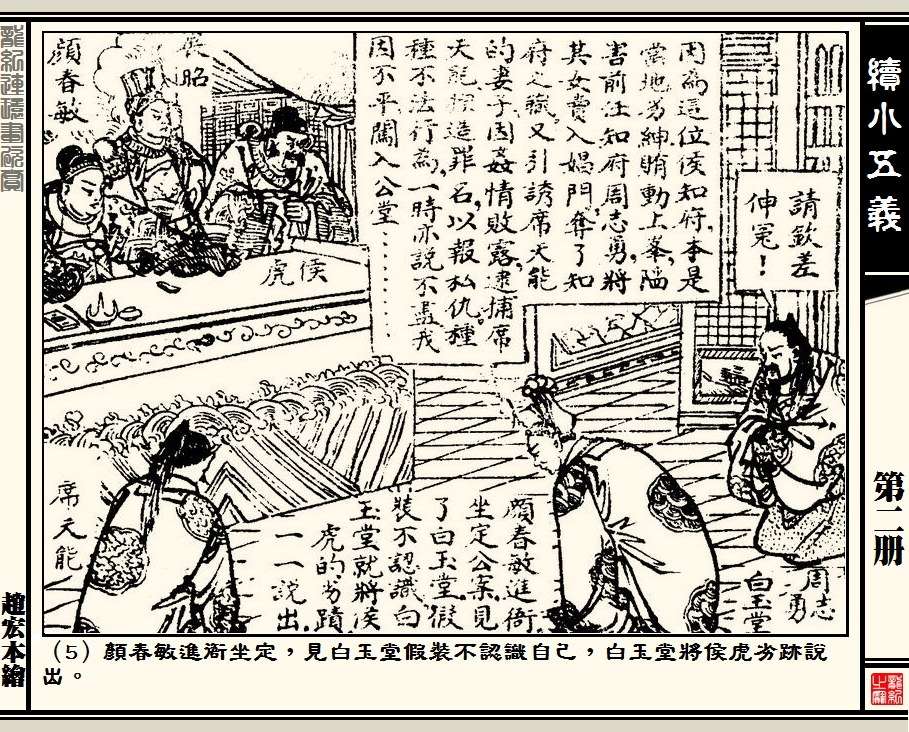 續小五義
第二册
因為這位侯知府,本是
當地劣紳賄動上峯,陷
害前任知府周志勇,將
其女賣入娼門,奪了知
府之職,又引誘席天能
的妻子,因姦情敗露,逮捕席
天能,捏造罪名,以報私仇。種
種不法行為,一時亦說不盡。我
因不平闖入公堂……
請欽差
伸冤!
展昭
顏春敏
侯虎
席天能
周志勇
白玉堂
顏春敏進衙,
坐定公案,見
了白玉堂,假
裝不認識,白
玉堂就將侯
虎的劣蹟
一一說出。
(5)顏春敏進衙坐定,見白玉堂假裝不認識自己,白玉堂將侯虎劣跡說
出。
趙宏本繪